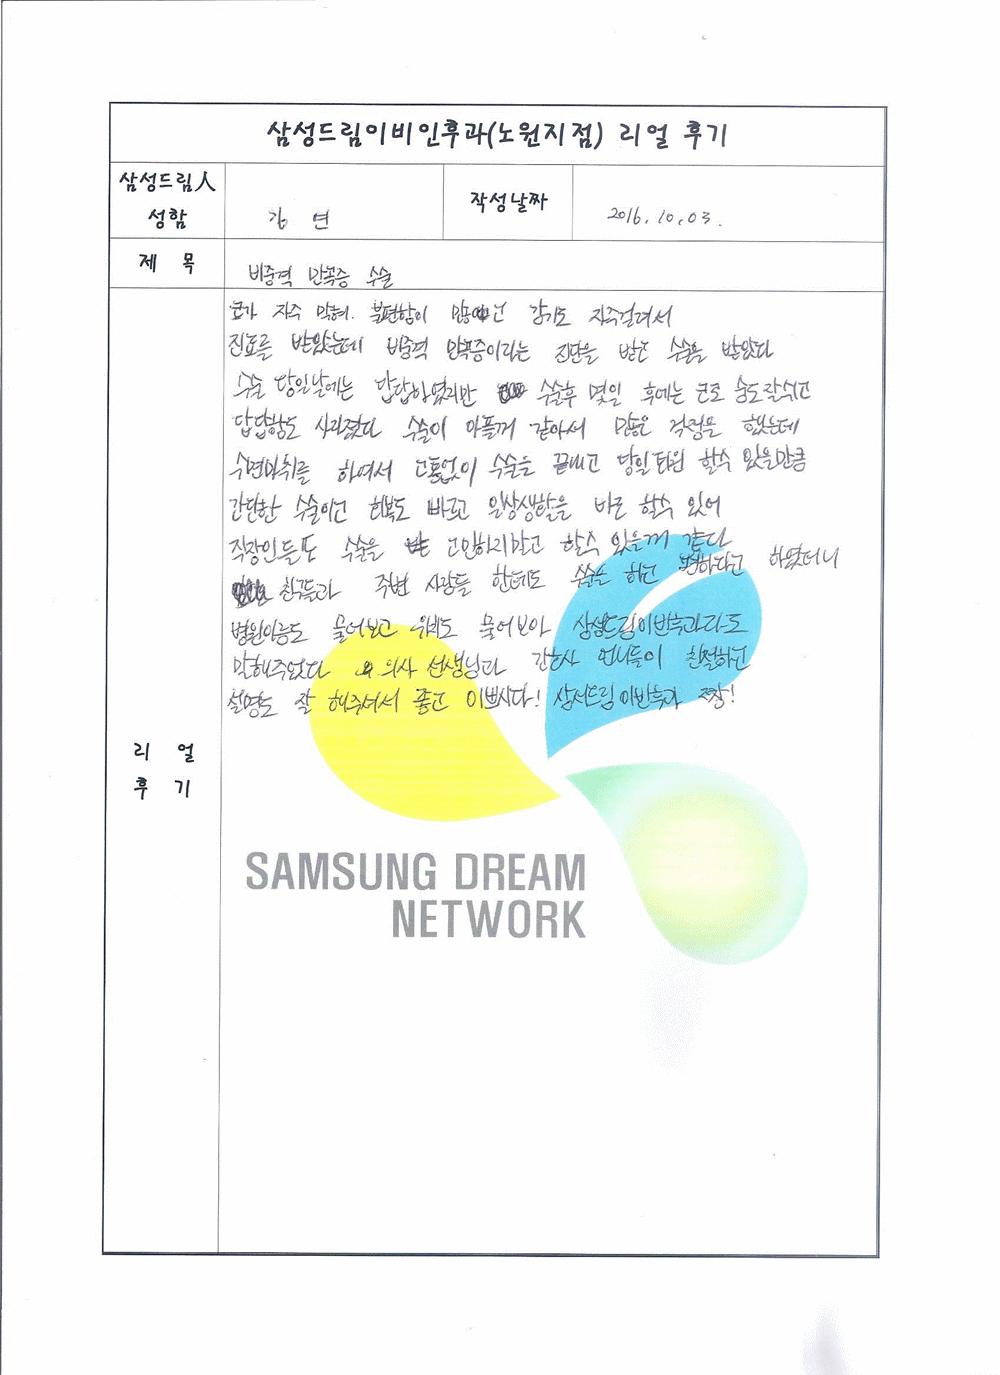 삼성드림이비인후과(노원지점) 리얼 후기
삼성드림人
성함
김 연
작성날짜
2016. 10. 03.
제 목
비중격 만곡증 수술
코가 자주 막혀. 불편함이 많았고 감기도 자주걸려서
진료를 받았는데 비중격 만곡증이라는 진단을 받은 수술을 받았다
수술 당일날에는 답답하였지만 수술후 몇일 후에는 코로 숨도잘쉬고
답답함도 사라졌다 수술이 아플꺼 같아서 많은 걱정을 했는데
수면마취를 하여서 고통없이 수술을 끝내고 당일퇴원 할수 있을만큼
간단한 수술이고 회복도 빠르고 일상생활을 바로 할수 있어
직장인들도 수술을 고민하지말고 할수 있을꺼 같다
친구들과 주변 사람들 한테도 수술을 하고 편하다고 하였더니
병원이름도 물어보고 위치도 물어보아 삼성드림이비인후과라고
말해주었다 의사 선생님과 간호사 언니들이 친절하고
설명도 잘 해주셔서 좋고 이쁘시다! 삼성드림이비인후과 짱!
리 얼
후 기
SAMSUNG DREAM
NETWORK